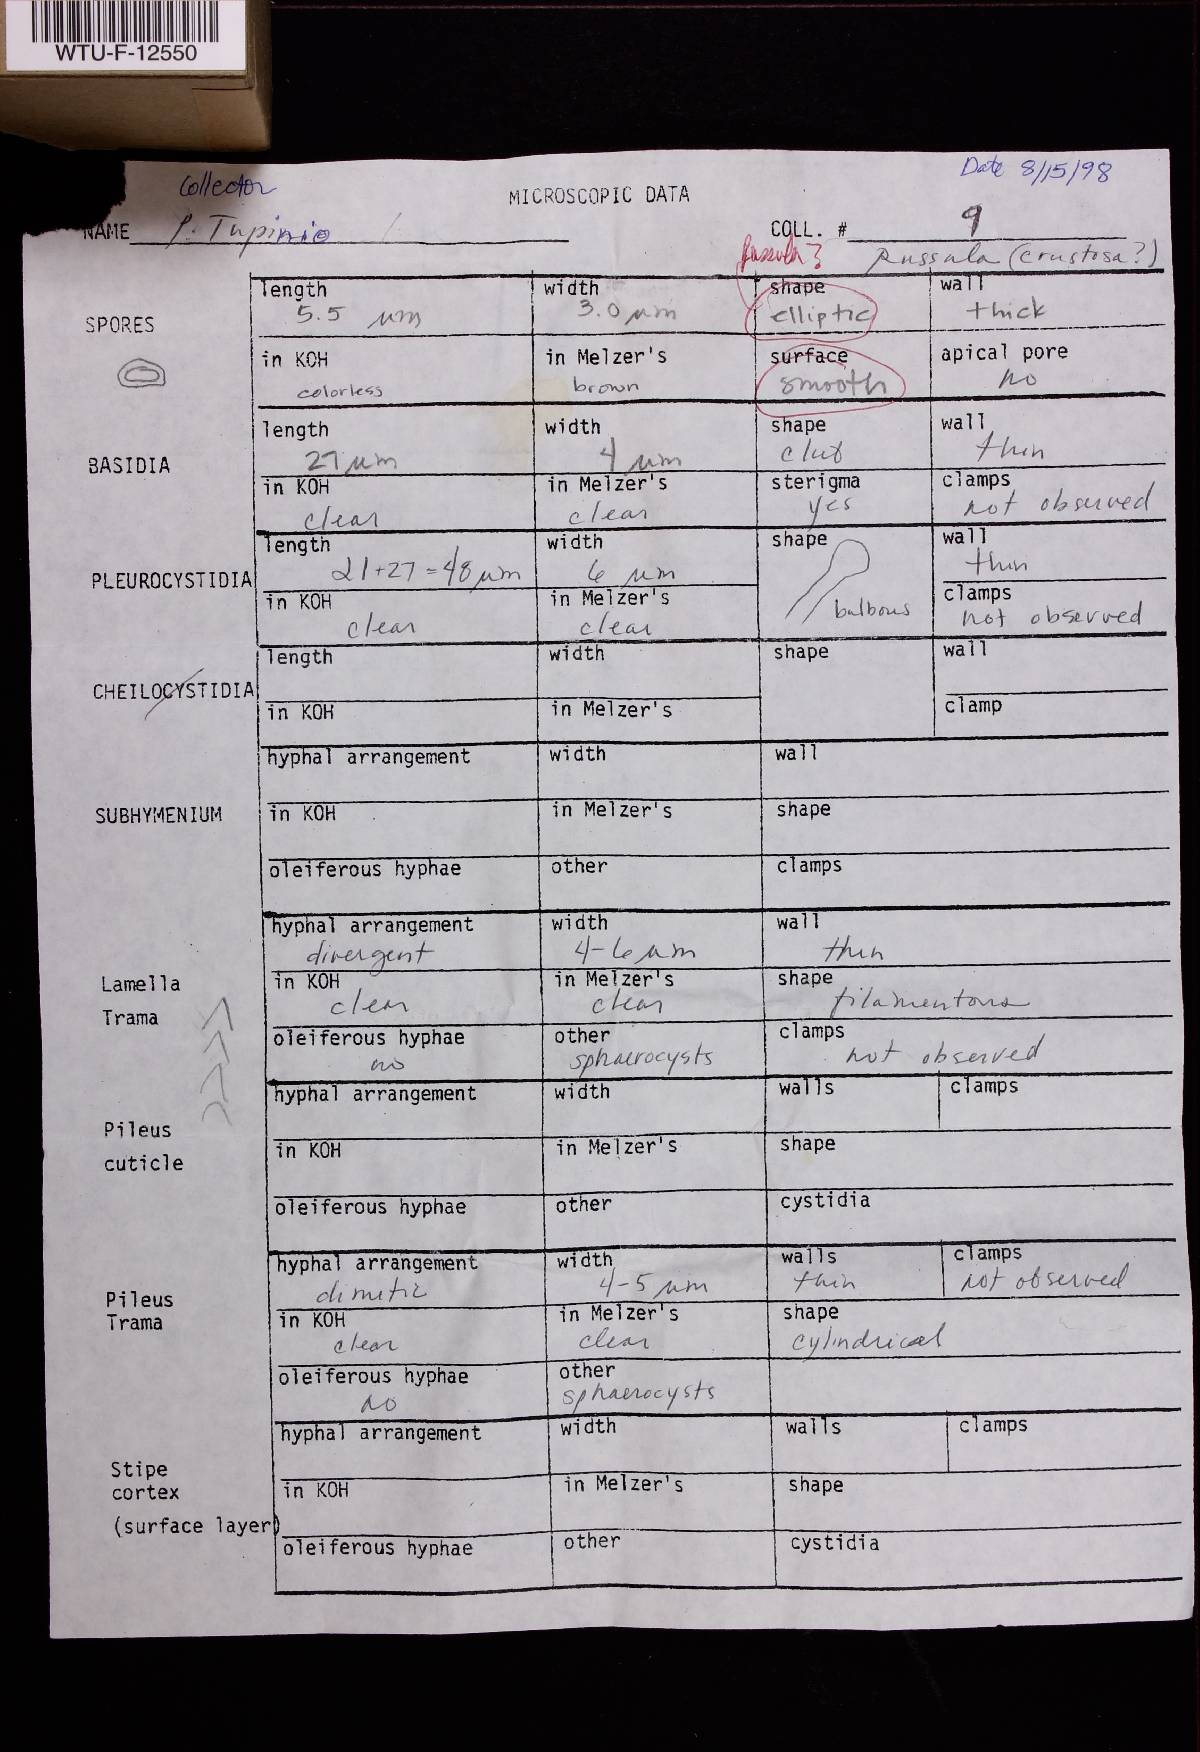 WTU-F-12550
Collector
Date 8/15/98
MICROSCOPIC DATA
NAME P. Tupinio
COLL. # 9
Russula? Russula (crustosa?)
SPORES
length width shape wall
5.5 µm 3.0 µm elliptic thick
in KOH in Melzer's surface apical pore
colorless brown smooth no
BASIDIA
length width shape wall
27 µm 4 µm club thin
in KOH in Melzer's sterigma clamps
clear clear yes not observed
PLEUROCYSTIDIA
length width shape wall
21+27=48 µm 6 µm thin
in KOH in Melzer's bulbous clamps
clear clear not observed
CHEILOCYSTIDIA
length width shape wall
in KOH in Melzer's clamp
SUBHYMENIUM
hyphal arrangement width wall
in KOH in Melzer's shape
oleiferous hyphae other clamps
Lamella
Trama
hyphal arrangement width wall
divergent 4-6 µm thin
in KOH in Melzer's shape
clear clear filamentous
oleiferous hyphae other clamps
no sphaerocysts not observed
Pileus
cuticle
hyphal arrangement width walls clamps
in KOH in Melzer's shape
oleiferous hyphae other cystidia
Pileus
Trama
hyphal arrangement width walls clamps
dimitic 4-5 µm thin not observed
in KOH in Melzer's shape
clear clear cylindrical
oleiferous hyphae other
no sphaerocysts
Stipe
cortex
(surface layer)
hyphal arrangement width walls clamps
in KOH in Melzer's shape
oleiferous hyphae other cystidia